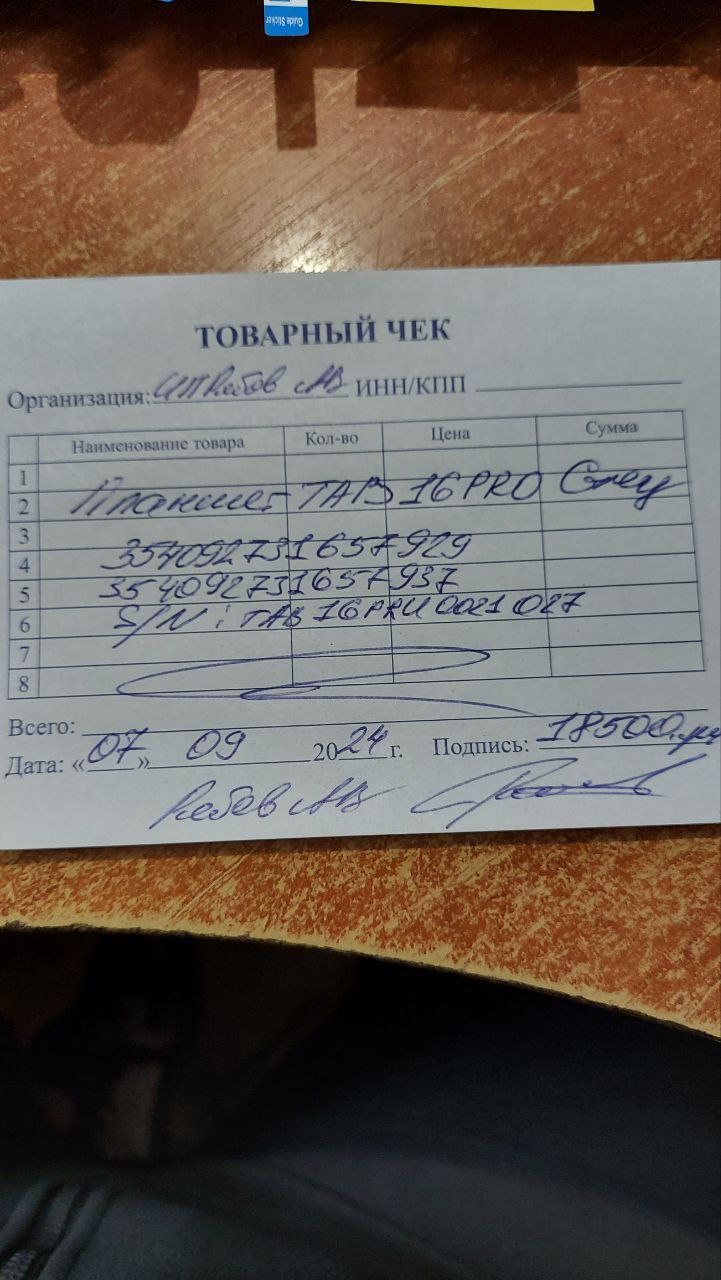 Guide Sticker
ТОВАРНЫЙ ЧЕК
Организация: ИП АВ ИНН/КПП
Наименование товара Кол-во Цена Сумма
1
2 Планшет TAB 16 PRO Grey
3
4 354092731657929
5 354092731657937
6 S/N: TAB 16 PRO 0021027
7
8
Всего:
Дата: «07» 09 2024 г. Подпись: 18500
АВ